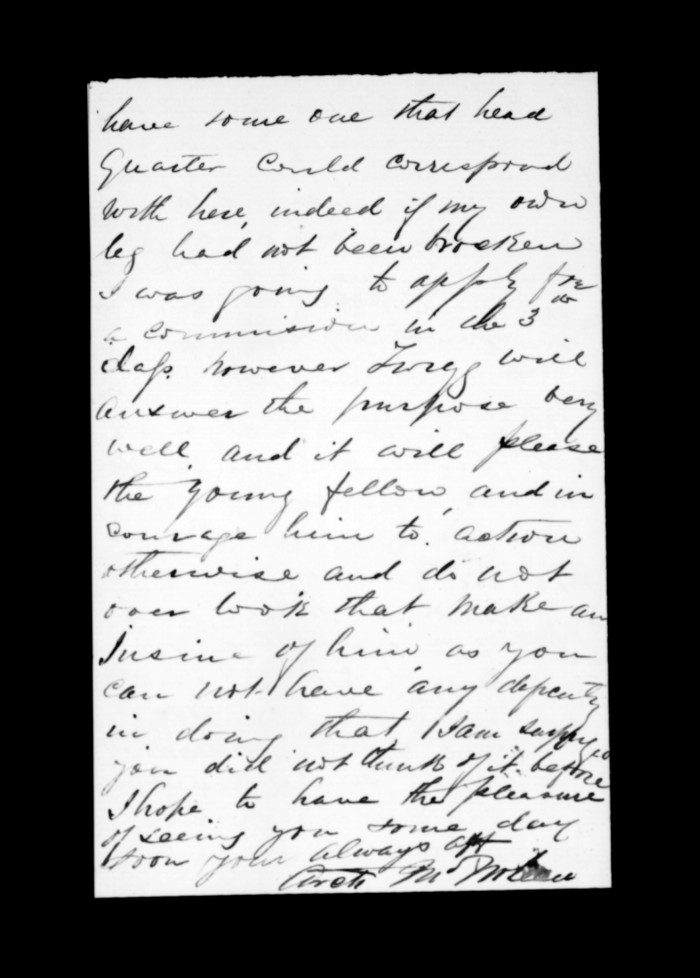 have some one that head
Quarter Could correspond
with here, indeed if my own
leg had not been broken
I was going to apply for
a commission in the 3
class however will
answer the purpose very
well and it will please
the young fellow, and in
courage him to. action
otherwise and do not
over look that make an
Insine of him as you
can not have any depculty
in doing that I am surprised
you did not think of it before
I hope to have the pleasure
of seeing you some day
soon your always aft
Arch Mc